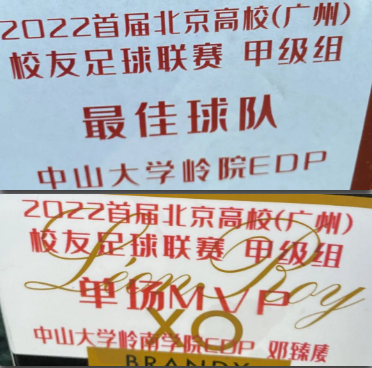 2022首届北京高校(广州)
校友足球联赛 甲级组
最佳球队
中山大学岭院EDP
2022首届北京高校(广州)
校友足球联赛 甲级组
Léon Roy
单场MVP
XO
中山大学岭南学院EDP 邓臻廔
BRANDY